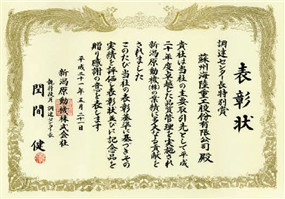 表彰状
調達センター長特別賞
蘇州海陸重工股份有限公司 殿
貴社は当社の主要取引先として平成
二十年度卓越した品質管理を実施され
新潟原動機㈱の業務に多大なる貢献を
されました
このたび当社の表彰基準に基づきその
実績を評価し表彰状並びに記念品を
贈り感謝の意を表します
平成二十一年五月二十一日
新潟原動機株式会社
執行役員 調達センター長
関間 健